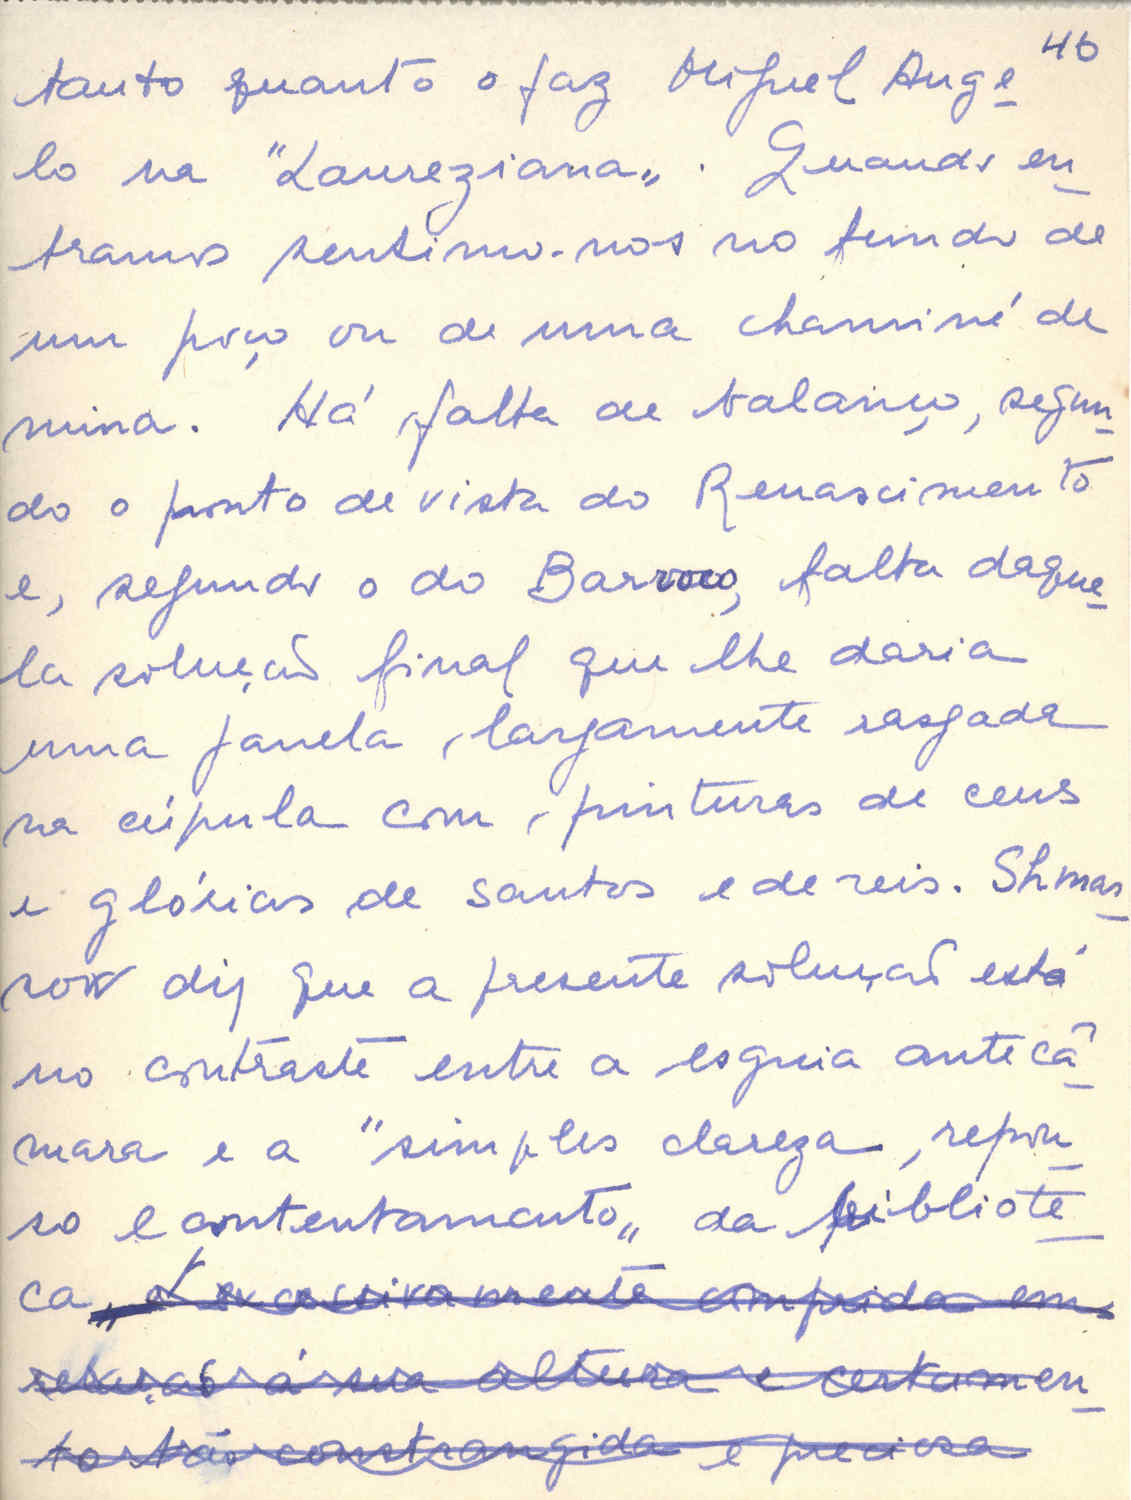 46
tanto quanto o faz Miguel Ange
lo na "Laureziana„. Quando en
tramos sentimo-nos no fundo de
um poço ou de uma chaminé de
mina. Há falta de balanço, segun
do o ponto de vista do Renascimento
e, segundo o do Barroco, falta daque
la solução final que lhe daria
uma janela largamente rasgada
na cúpula com pinturas de ceus
e glórias de santos e de reis. Shmar
sow diz que a presente solução está
no contraste entre a esguia antecâ
mara e a "simples clareza, repou
so e contentamento„ da bibliote
ca, excessivamente comprida em
relação á sua altura e certamen
te tão constrangida e preciosa